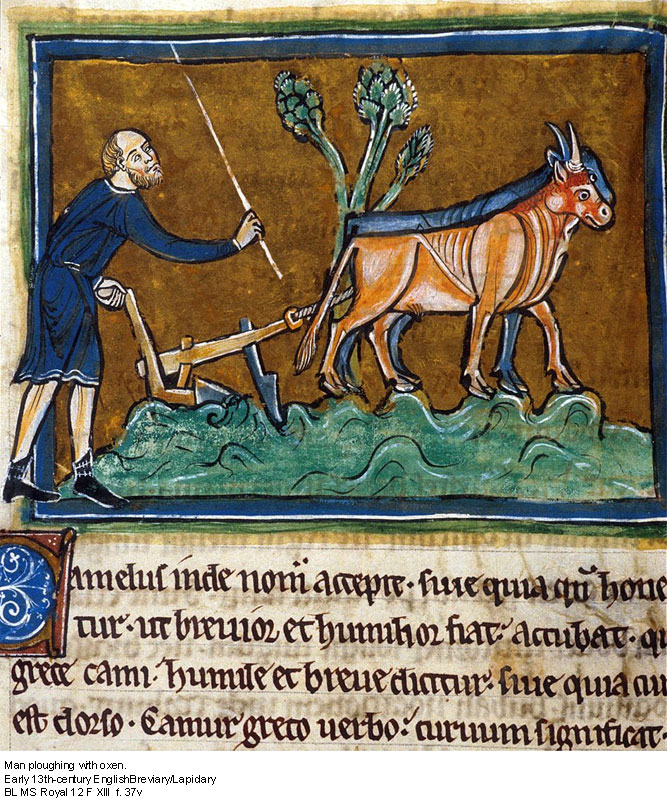 Camelus inde nom̄ accepte · siue quia qn̄ hone
tur · ut breuior et humilior fiat : accubat · qu
grece cami · humile et breue dicitur : siue quia cur
est dorso · Camur greco uerbo : curuum significat ·
Man ploughing with oxen.
Early 13th-century EnglishBreviary/Lapidary
BL MS Royal 12 F XIII f. 37v